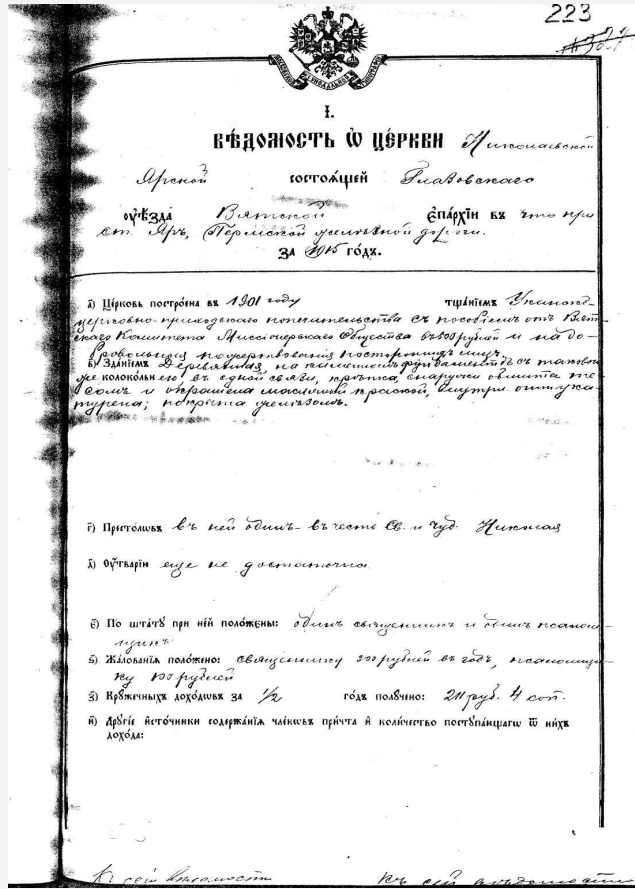 223
І.
ВѢДОМОСТЬ Ѿ ЦЕРКВИ Николаевской
Ярской состоѧщей Глазовскаго
оуѣзда Вятской Єпархіи въ что при
ст. Яръ, Пермской желѣзной дороги.
за 1915 годъ.
а) Церковь построена въ 1901 году тщаніемъ
церковно-приходскаго попечительства съ пособіемъ отъ Вят-
скаго Комитета Миссіонерскаго Общества въ 500 рублей и на до-
бровольныя пожертвованія постороннихъ лицъ.
в) Зданіемъ Деревянная, на каменномъ фундаментѣ съ таковою
же колокольнею, въ одной связи, крѣпка, снаружи обшита те-
сомъ и окрашена масляной краской, внутри оштука-
турена; покрыта желѣзомъ.
г) Престолѡвъ въ ней одинъ - въ честь Св. и чуд. Николая
д) Оутварїи еще не достаточна
є) По штатꙋ при ней положены: одинъ священникъ и одинъ псалом-
щикъ
ѕ) Жалованїѧ положено: священнику 300 рублей въ годъ, псаломщи-
ку 100 рублей
з) Крꙋжечныхъ доходѡвъ за 1/2 годъ получено: 211 руб. 4 коп.
и) Дрꙋгїе источники содержанїѧ членѡвъ причта и количество постꙋпающагѡ ѿ нихъ
дохода:
Къ сей вѣдомости къ сей вѣдомости